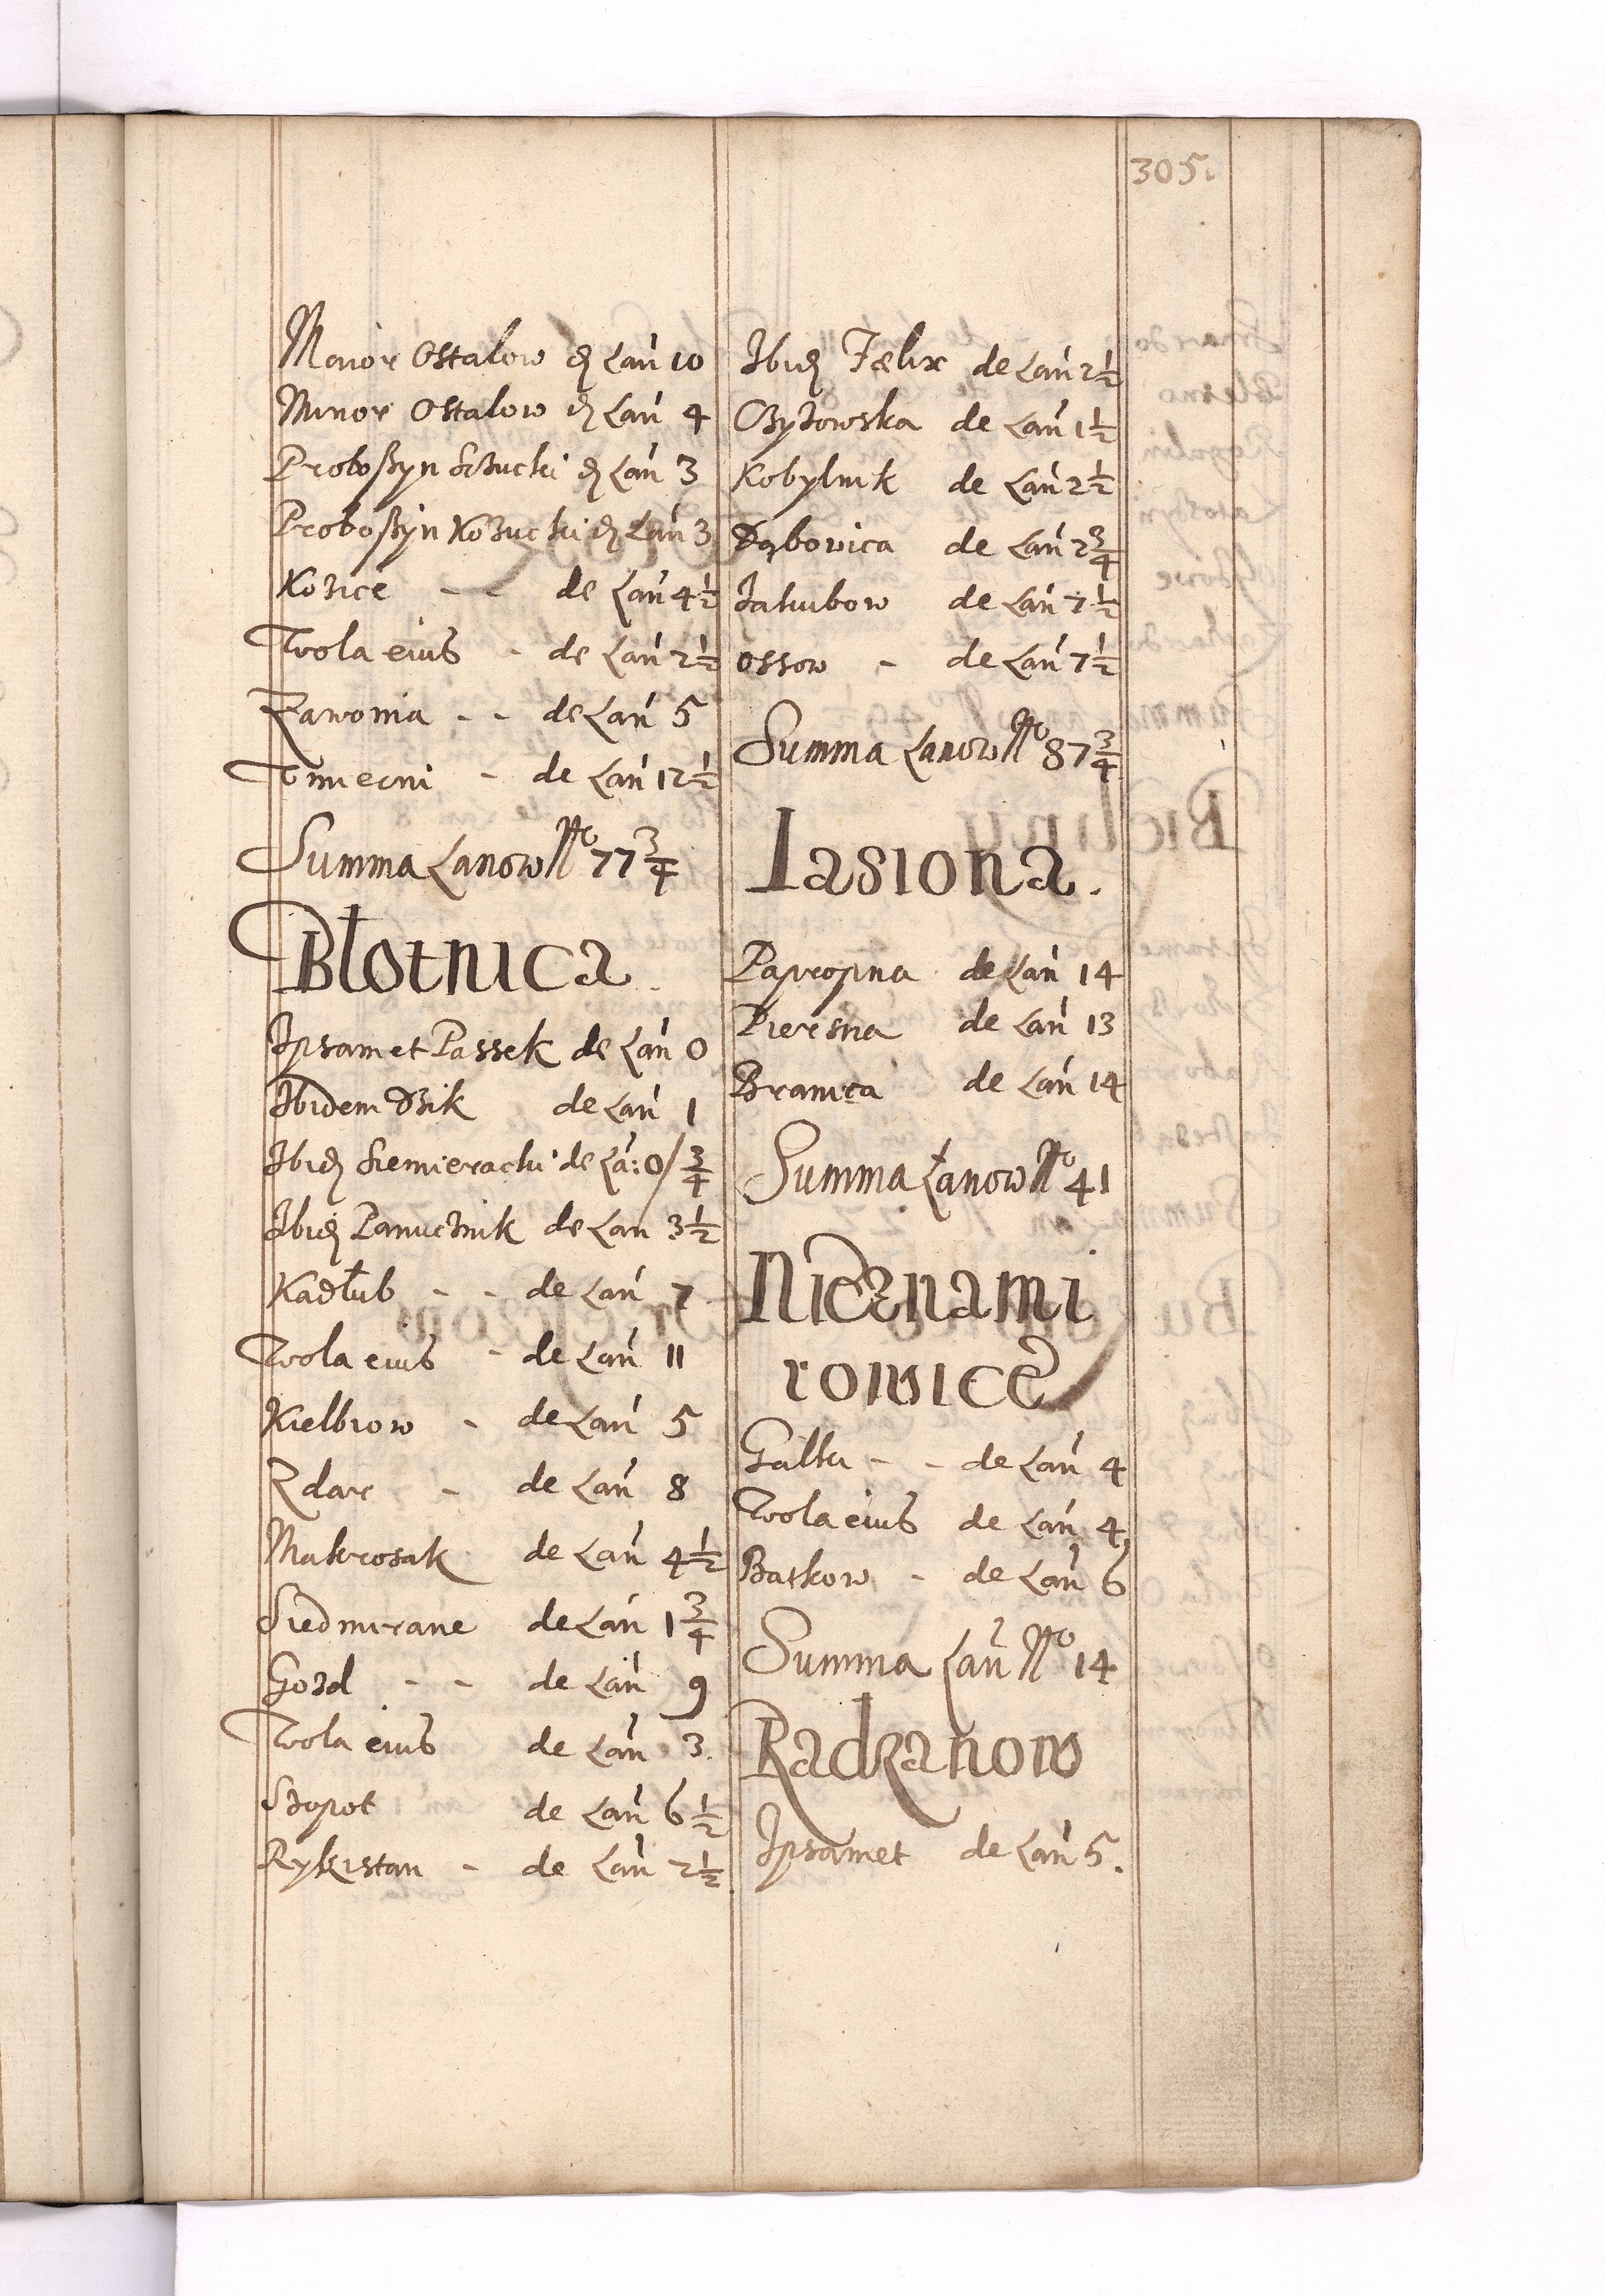 305.
Maior Ostalow d Lan 10
Minor Ostalow d Lan 4
Proboßyn d Lan 3
Proboßyn Kożuchi d Lan 3
Kozice - - de Lan 4 1/2
Wola eius - de Lan 2 1/2
Zawonia - - de Lan 5
de Lan 12 1/2
Summa Lanow No 77 3/4
Błotnica.
Ipsamet Passek de Lan 0
Ibidem de Lan 1
Ibid Siemierachi de La: 0/ 3/4
Ibid de Lan 3 1/2
Kadłub - - de Lan 7
Wola eius - de Lan 11
Kielbrow - de Lan 5
Zdar - de Lan 8
Makrosak de Lan 4 1/2
Siedmirane de Lan 1 3/4
Gozd - - de Lan 9
Wola eius de Lan 3.
Stopot de Lan 6 1/2
de Lan 2 1/2
Ibid Fælix de Lan 2 1/2
de Lan 1 1/2
Kobylnik de Lan 2 1/2
Dąbowica de Lan 2 3/4
Iakubow de Lan 7 1/2
Ossow - de Lan 7 1/2
Summa Lanow No 87 3/4
Iasiona.
de Lan 14
de Lan 13
Branica de Lan 14
Summa Łanow No 41
Nicznami
rowice
de Lan 4
Wola eius de Lan 4
Batkow - de Lan 6
Summa Lan No 14
Radzanow
Ipsamet de Lan 5.